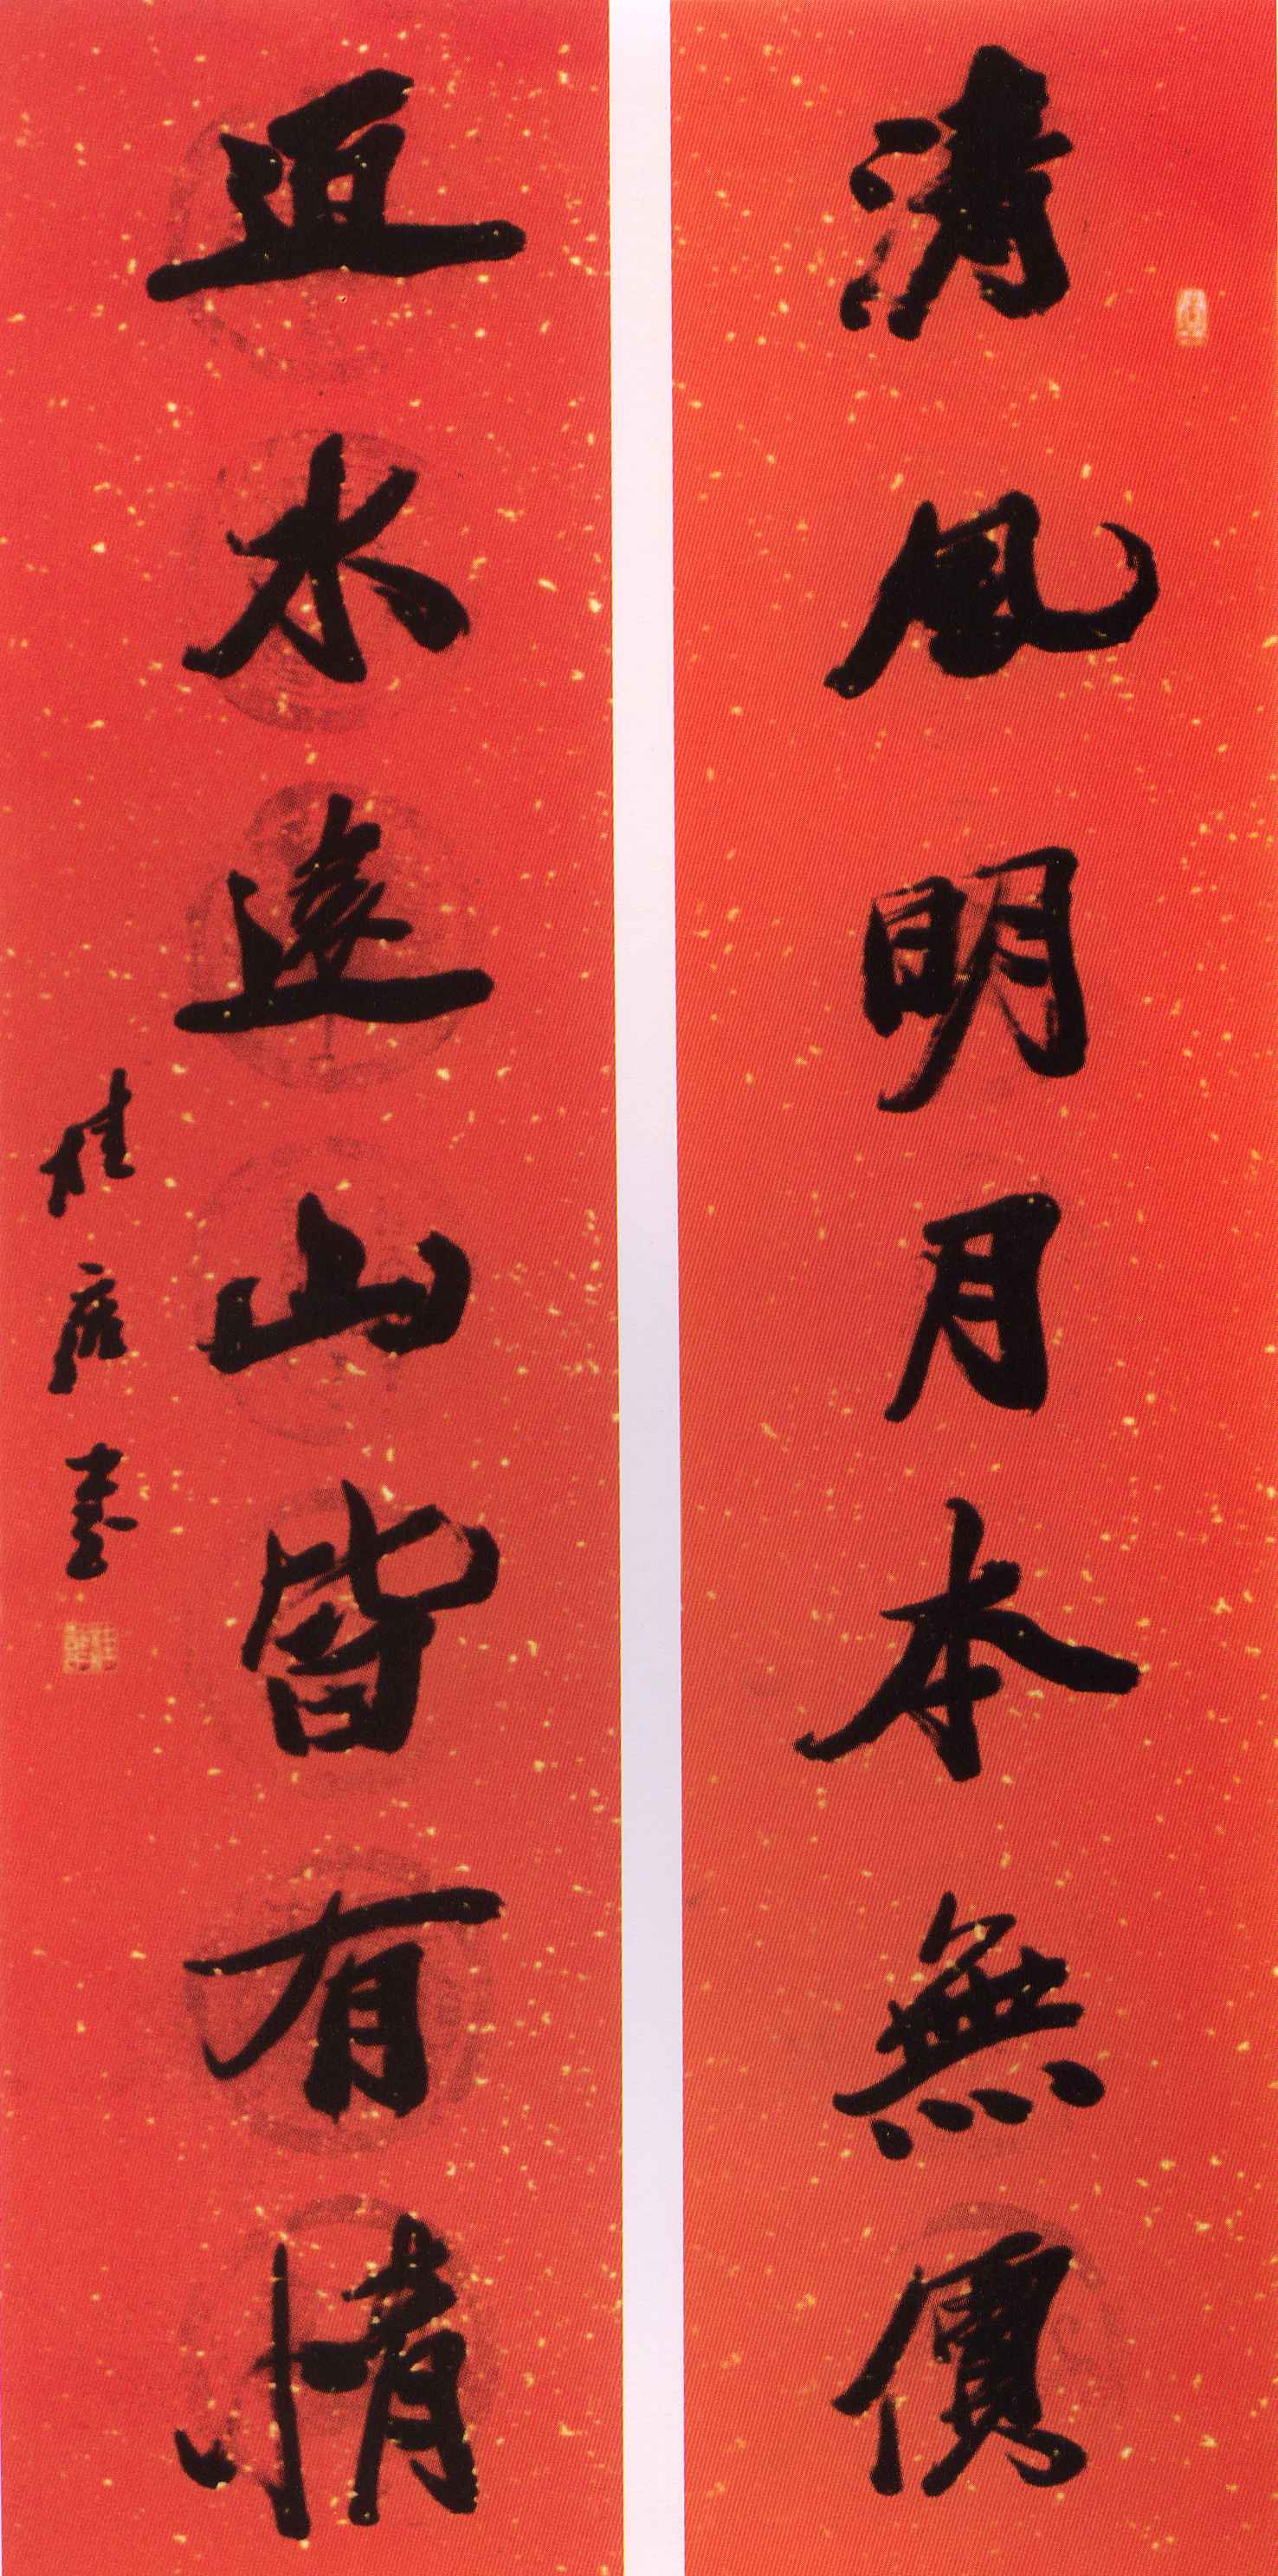 清風明月本無價
近水遠山皆有情
桂